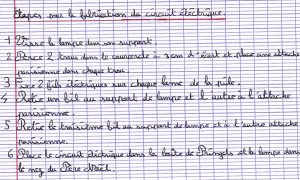 Etapes pour la fabrication du circuit électrique.
1 Visse la lampe dans son support.
2 Perce 2 trous dans le couvercle à 3 cm d'écart et place une attache
parisienne dans chaque trou.
3 2 fils électriques sur chaque lame de la pile.
4 Relie un fil au support de lampe et l'autre à l'attache
parisienne.
5 Relie le troisième fil au support de lampe et à l'autre attache
parisienne.
6 Place le circuit électrique dans la boîte de Pringels et la lampe dans
le nez du Père Noël.